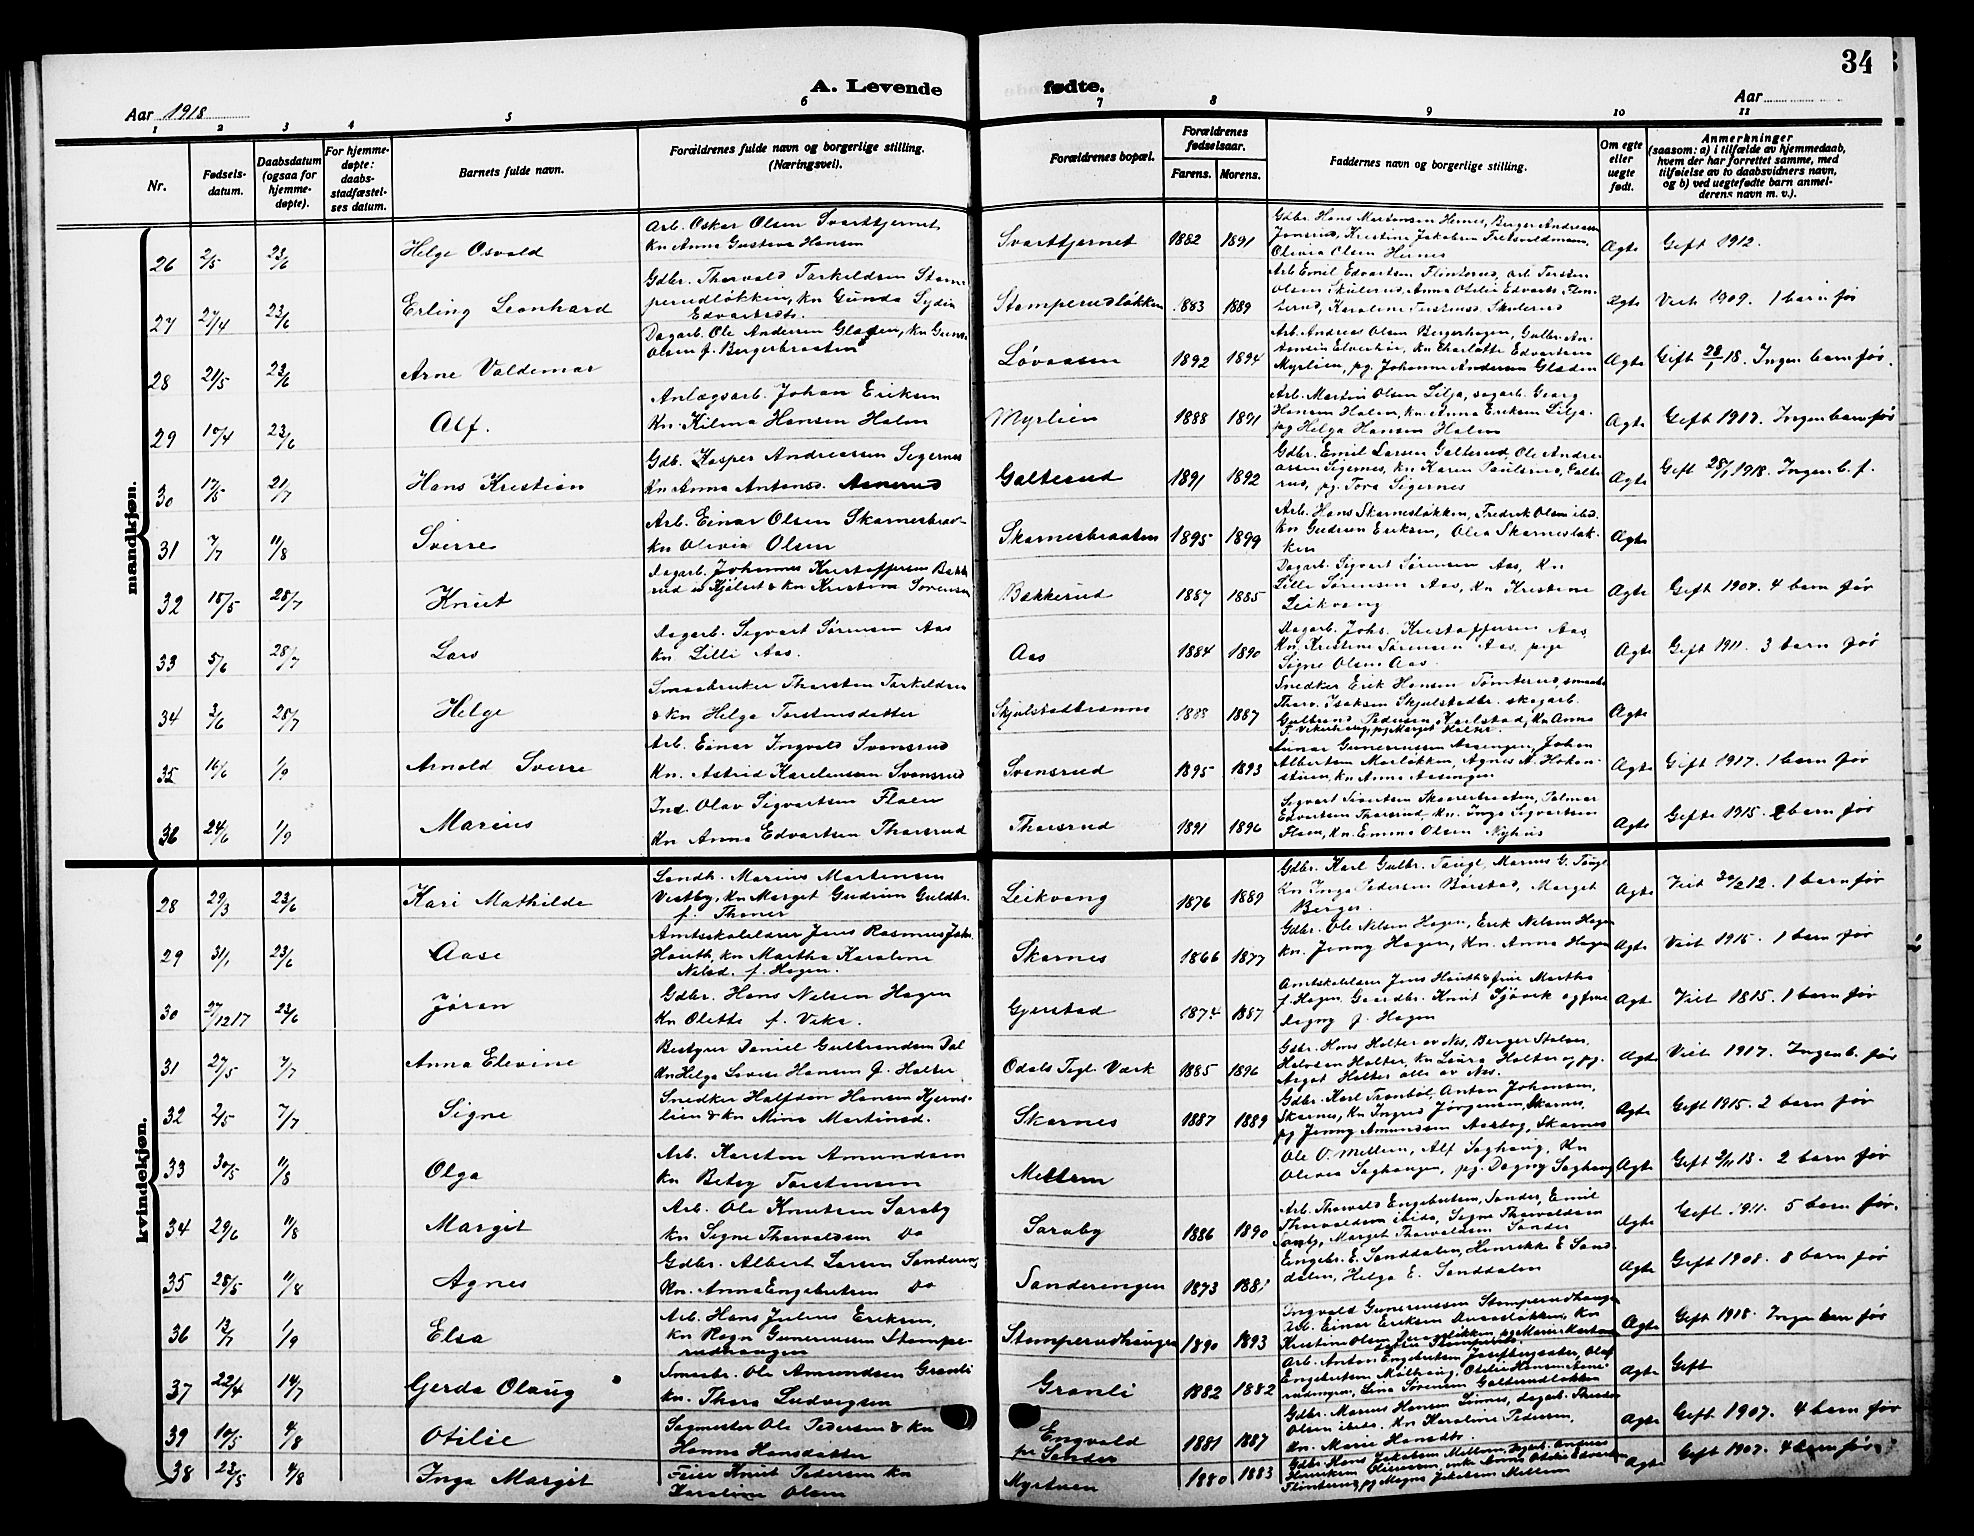 34
A. Levende fødte.
Aar 1918
Aar
1 2 3 4 5 6 7 8 9 10 11
Nr.
Fødsels-
datum.
Daabsdatum
(ogsaa for
hjemme-
døpte).
For hjemme-
døpte:
daabs-
stadfæstel-
ses datum.
Barnets fulde navn.
Forældrenes fulde navn og borgerlige stilling.
(Næringsvei).
Forældrenes bopæl.
Forældrenes
fødselsaar.
Farens. Morens.
Faddernes navn og borgerlige stilling.
Om egte
eller
uegte
født.
Anmerkninger
(saasom: a) i tilfælde av hjemmedaab,
hvem der har forrettet samme, med
tilføielse av to daabsvidners navn,
og b) ved uegtefødte barn anmel-
derens navn m. v.).
mandkjøn.
26 2/5 23/6 Helge Osvald
Arb. Oskar Olsen Svarttjernet
Kn Anna Gustava Hansen
Svarttjernet 1882 1891
Gdbr. Hans Martinsen Hernes, Berger Andreassen
Olivia Olsen Hernes
Ægte Gift 1912.
27 27/4 23/6 Erling Leonhard
Gdbr. Thorvald Tarkildsen Stom-
perudløkken, kn Gunda Lydia
Edvartsdt.
Stomperudløkken 1883 1889
Arb Emil Edvartsen Flinterud, arb. Torsten
Olsen Skulerud, Anna Otilie Edvarts. Flin-
terud, Karoline Torstensd. Skulerud
Ægte Viet 1909. 1 barn før
28 21/5 23/6 Arne Valdemar
Dagarb. Ole Andersen Gladen, kn
Olsen f. Bergerbraaten
Løvaasen 1892 1894
Arb. Andreas Olsen Bergerhagen, Gulbr. An-
kn Charlotte Edvartsen
Myrlien, pg. Johanne Andersen Gladen
Ægte Gift 28/1 18. Ingen barn før.
29 10/4 23/6 Alf.
Anlægsarb. Johan Eriksen
Kn. Hilma Hansen Holm
Myrlien 1888 1891
Arb. Martin Olsen Lilja, dagarb. Georg
Hansen Holm, kn. Anna Eriksen Lilja.
pg Helga Hansen Holm
Ægte Gift 1917. Ingen barn før
30 17/5 21/7 Hans Kristian
Gdb. Kasper Andreassen Segernes
Kn Anna Antonsd. Asnerud
Galterud 1891 1892
Gdbr. Emil Larsen Galterud, Ole Andre-
assen Sigernes, kn Karen Paulerud, Galte-
rud, pg. Tora Sigernes
Ægte Gift 28/1 1918. Ingen b. f.
31 7/7 11/8 Sverre
Arb. Einar Olsen Skarnesbraa-
kn Olivia Olsen
Skarnesbraaten 1895 1899
Arb. Hans Skarnesløkken, Fredrik Olsen ibd.
kn Gudrun Eriksen, Olea Skarnesløk-
ken
Ægte
32 15/5 28/7 Knut
Dagarb. Johannes Kristoffersen Bakke-
rud & kn Kristine Sørensen
Bakkerud 1887 1885
Dagarb. Sigvart Sørensen Aas, kn
Lilli Sørensen Aas, kn Kristine
Leikvang
Ægte Gift 1907. 4 barn før
33 5/6 28/7 Lars
Dagarb. Sigvart Sørensen Aas
kn. Lilli Aas.
Aas 1884 1890
Dagarb. Johs. Kristoffersen Aas,
Kn. Kristine Sørensen Aas, pige
Signe Olsen Aas.
Ægte Gift 1911. 3 barn før
34 3/6 28/7 Helge
Smaabruker Thorsten Tarkildsen
& kn Helga Torstensdatter
1888 1887
Snedker Erik Hansen Tomterud, smaabr
Thorv. Isaksen Skjulstadbr. skogarb.
Gulbrand Pedersen Karlstad, kn Anna
Ægte
35 16/6 1/9 Arnold Sverre
Arb. Einar Ingvald Svensrud
Kn. Astrid Karelensen Svensrud
Svensrud 1895 1893
Einar Gunerussen Aasengen, Johan
Albertsen Morløkken, Agnes A. Haken-
stuen, kn Anna Aasingen
Ægte Gift 1917. 1 barn før
36 24/6 1/9 Marius
Ind. Olav Sigvartsen Flaen
Kn Anna Edvartsen Tharsrud
Tharsrud 1891 1896
Edvartsen Tharsrud, kn. Inga Sigvartsen
Flaen, kn. Emma Olsen Nyhus
Ægte Gifte 1915. 2 barn før
kvindekjøn.
28 29/3 23/6 Kari Mathilde
Landh. Marius Martinsen
Vestby, kn Marget Gudrun Guldbr.
f. Thoner
Leikvang 1876 1889
Gdbr. Karl Gulbr. Taugl, Marius G. Taugl
Kn Inga Pedersen Børstad, Marget
Berger.
Ægte Viet 30/2 12. 1 barn før
29 31/1 23/6 Aase
Amtsskolelærer Jens Rasmus Joh.
Hauth, kn Martha Karoline
Nilsd. f. Hagen.
Skarnes 1866 1877
Gdbr. Ole Nelsen Hagen, Erik Nilsen Hagen
kn. Jenny Hagen, kn. Anna Hagen
Ægte Viet 1915. 1 barn før
30 27/12 17 23/6 Jøran
Gdbr. Hans Nelsen Hagen
Kn Olette f. Veka.
Gjerstad 1874 1887
Amtskolelærer Jens Hauth & frue Martha
f. Hagen, Gaardbr. Knut Sjøvik og frue
Dagny f. Hagen
Ægte Viet 1815. 1 barn før
31 27/5 7/7 Anna Elevine
Bestyrer Daniel Gulbrandsen Dal
Kn Helga Lovise Hansen f. Holter
Odals Tegl. Værk 1885 1896
Gdbr. Hans Holter av Nes, Berger
Halvorsen Holter, kn Laura Holter og pg.
Aagot Holter alle av Nes.
Ægte Viet 1917. Ingen b. før
32 2/5 7/7 Signe
Snedker Halfdan Hansen Kjerns-
lien & kn Mina Martinsd.
Skarnes 1887 1889
Gdbr. Karl Tronbøl, Anton Johansen,
Skarnes, kn Ingrid Jørgensen, Skarnes,
pg Jenny Amundsen Aasbog, Skarnes
Ægte Gift 1915. 2 barn før
33 30/5 11/8 Olga
Arb. Karsten Amundsen
kn Betsy Torstensen
Mellem
Ole O. Mellem, Alf Saghaug, Kn
Olivia Saghaugen, pg. Dagny Saghaug
Ægte Gift 2/11 13. 2 barn før
34 29/6 11/8 Margit
Arb. Ole Knutsen Saraby
kn Signe Thorvaldsen Do
Saraby 1886 1890
Arb. Thorvald Engebretsen, Sander, Emil
Thorvaldsen ibids, Signe Thorvaldsen
Marget Thorvaldsen Sander
Ægte Gift 1911. 5 barn før.
35 28/5 11/8 Agnes
Gdbr. Albert Larsen Sandereng
Kn. Anna Engebretsen Do
Sanderengen 1873 1881
Engebr. E. Sanddalen, Henrikke E Sand-
dalen, Helga E. Sanddalen
Ægte Gift 1908. 8 barn før
36 13/7 1/9 Elsa
Arb. Hans Julius Eriksen,
kn Ragn. Gunerussen Stompe-
rudhaugen
Stomperudhaugen 1890 1893
Ingvald Gunerussen Stomperudhaugen
Arb. Einar Eriksen
Ægte Gift 1918. Ingen barn før
37 22/4 14/7 Gerda Olaug
Smaabr. Ole Amundsen Granli
kn. Thora Ludvigsen
Granli 1882 1882
Arb. Anton Engebretsen Josefbergsæter, Olaf
Lina Sørensen Galterudløkken
Ægte Gift
39 10/5 4/8 Otilie
Sagmester Ole Pedersen & kn
Hanna Hansdatter
Engvald
pr Sander
1881 1887
Gdbr. Marius Hansen Linnes, dagarb. Thorsten
Olsen ibids. kn Karoline Pedersen,
kn. Marie Hansdtr.
Ægte Gift 1907. 4 barn før
38 23/5 4/8 Inga Margit
Feier Knut Pedersen kn
Karoline Olsen
Myrstuen 1880 1883
Gdbr Hans Jakobsen Mellem,
Flinterud, pg Magna Jakobsen Mellem
Ægte Gift 1907. 4 barn før